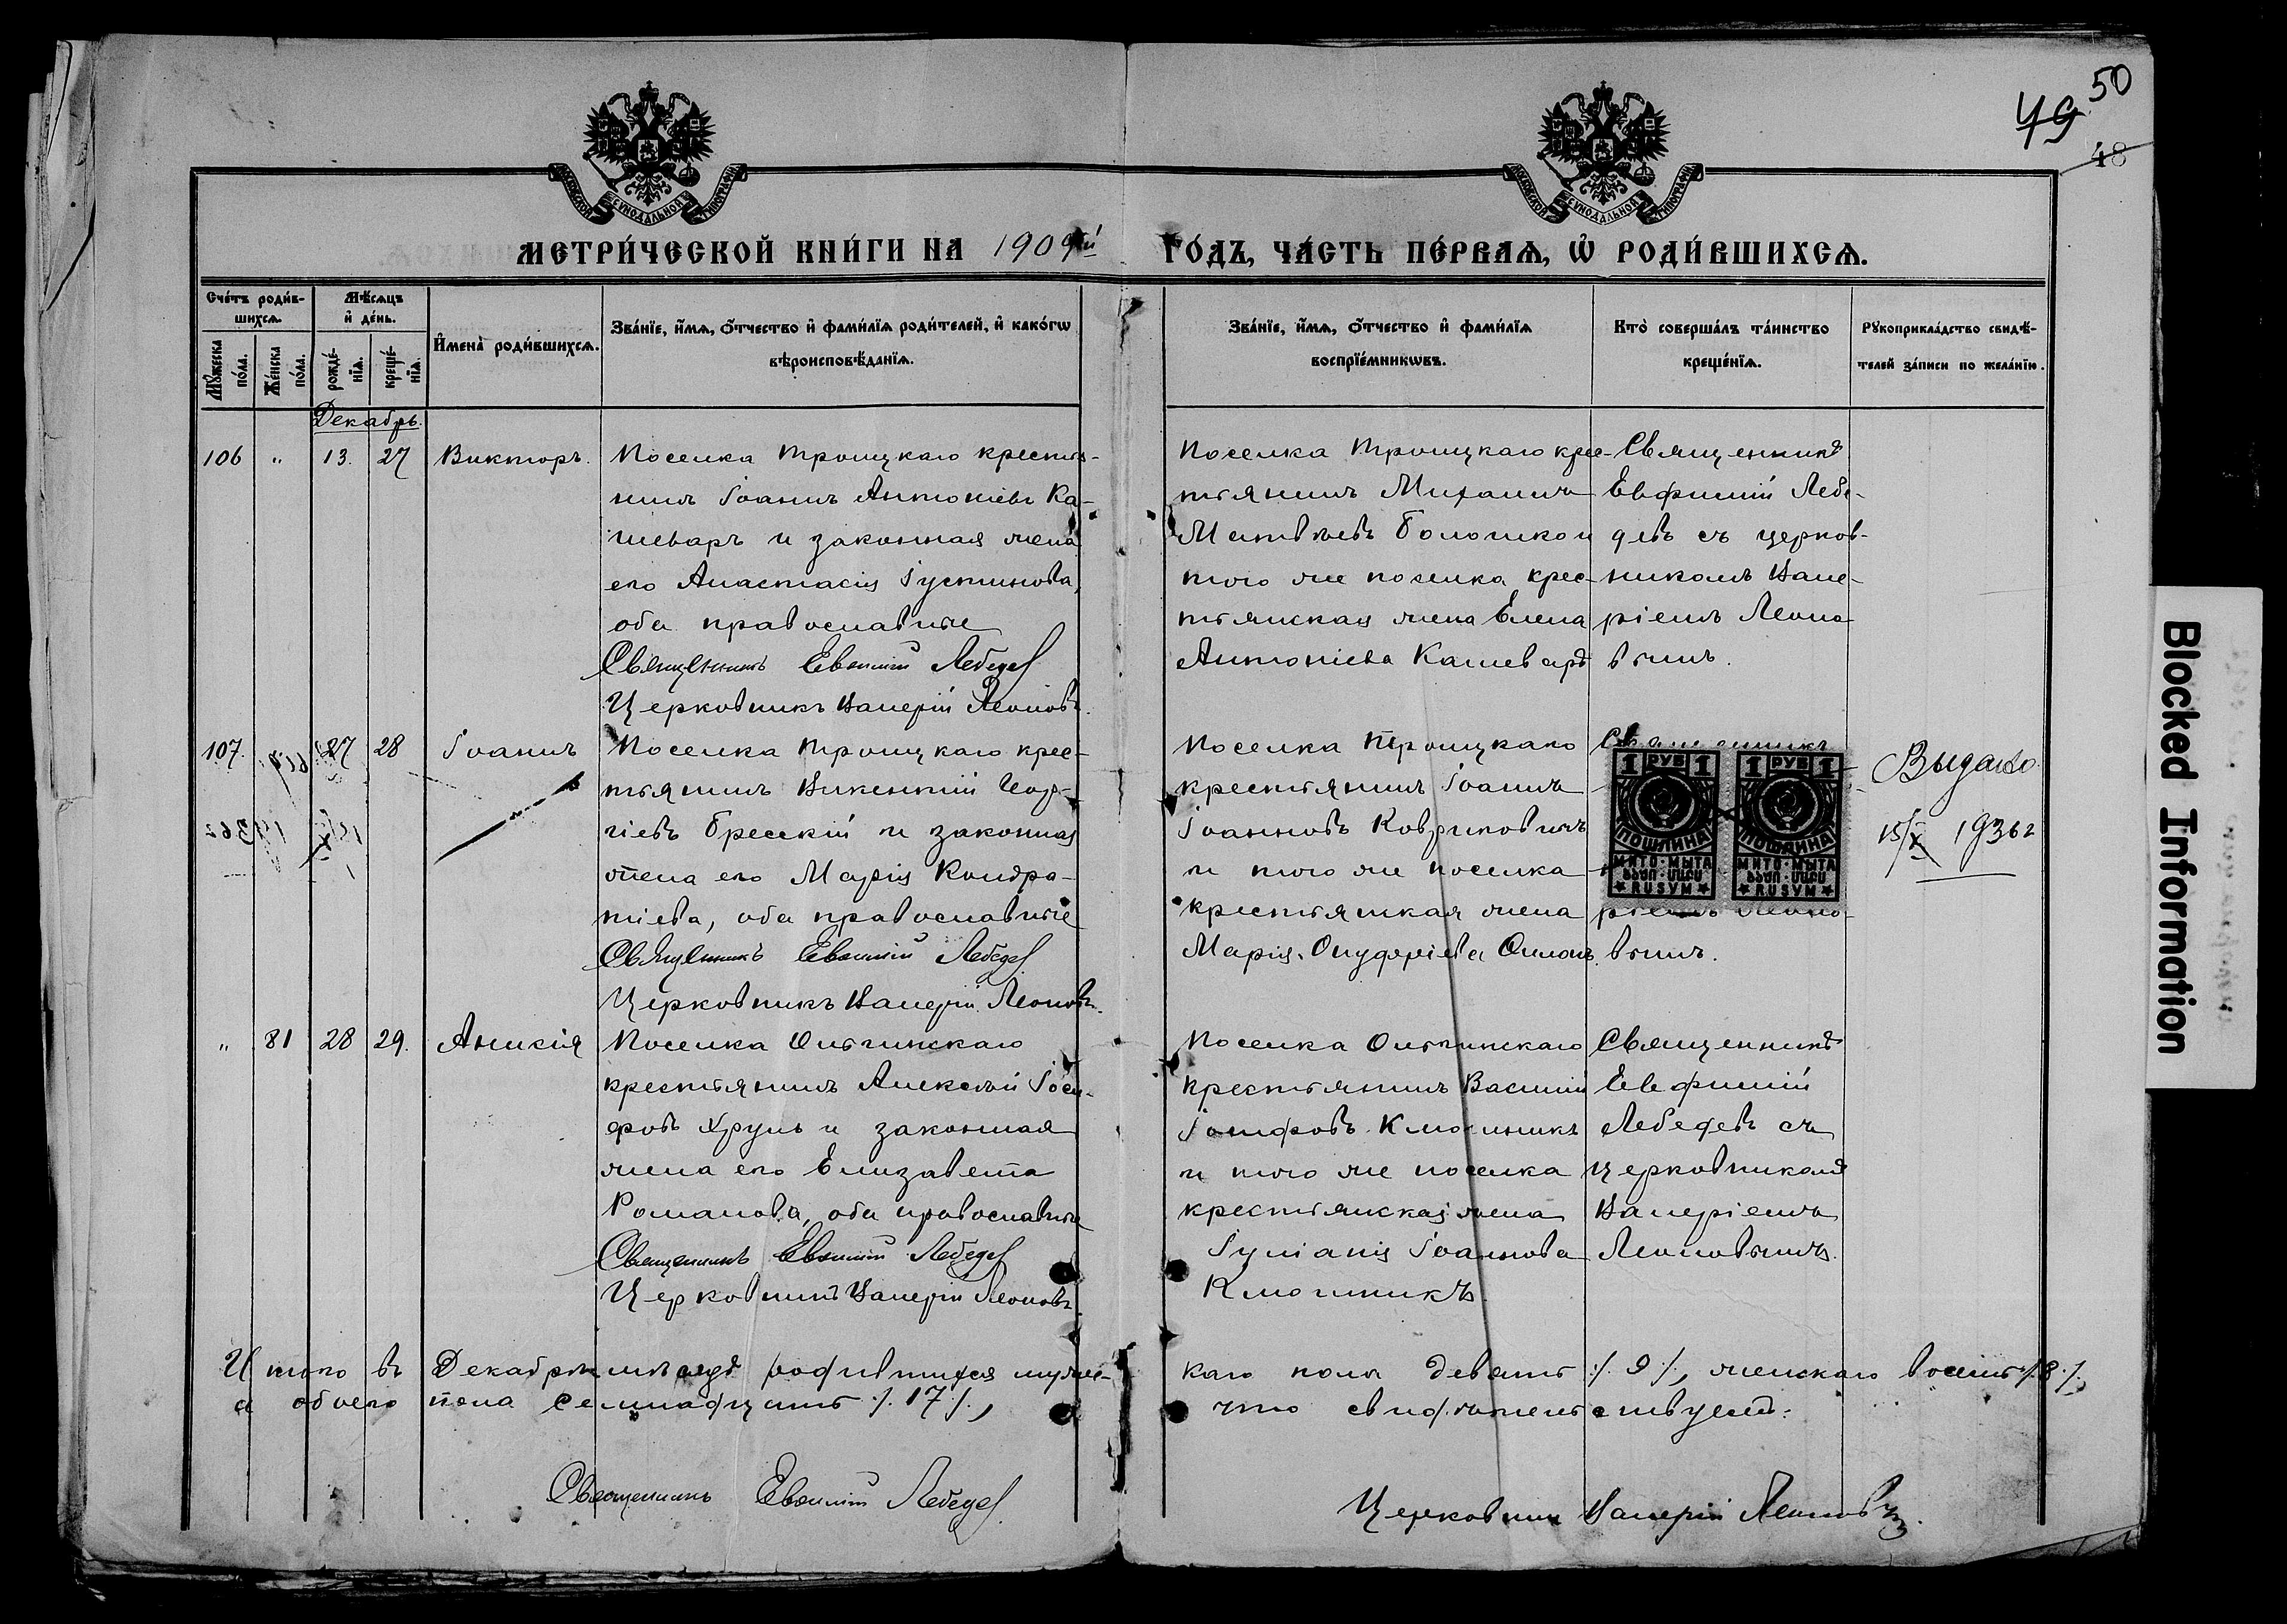 50
49
48
МОСКОВСКОЙ СѴНОДАЛЬНОЙ ТИПОГРАФІИ
МОСКОВСКОЙ СѴНОДАЛЬНОЙ ТИПОГРАФІИ
МЕТРИ́ЧЕСКОЙ КНИ́ГИ НА 1909ый ГО́ДЪ, ЧА́СТЬ ПЕ́РВАѦ, Ѡ҆ РОДИ́ВШИХСѦ.
Сче́тъ роди́в-
шихсѧ.
Мѣ́сѧцъ
и҆ де́нь.
Мꙋ́жеска
по́ла.
Же́нска
по́ла.
рожде́-
нїѧ.
креще́-
нїѧ.
И҆мена̀ роди́вшихсѧ.
Зва́нїе, и҆́мѧ, ѻ҆́тчество и҆ фами́лїѧ роди́телей, и҆ како́гѡ
вѣроисповѣ́данїѧ.
Зва́нїе, и҆́мѧ, ѻ҆́тчество и҆ фами́лїѧ
воспрїе́мникѡвъ.
Кто̀ соверша́лъ та́инство
креще́нїѧ.
Рꙋкоприкла́дство свидѣ́-
телей за́писи по жела́нїю.
Декабрь.
106 " 13. 27 Викторъ.
Поселка Троицкаго крестья-
нинъ Іоаннъ Антоніевъ Ка-
шеваръ и законная жена
его Анастасія Іустинова,
оба православные
Священникъ Евѳимій Лебедев
Церковникъ Валерій Леоновъ.
Поселка Троицкаго крес-
тьянинъ Михаилъ
Матвѣевъ
того же поселка крес-
тьянская жена Елена
Антоніева Кашеваръ
Священникъ
Евфимій Лебе-
девъ съ церков-
никомъ Вале-
ріемъ Леоно-
вымъ.
107. 27 28 Іоаннъ
Поселка Троицкаго крес-
тьянинъ Викентий Геор-
гіевъ Бресскій и законная
жена его Марія Кондра-
тіева, оба православные
Священникъ Евѳимій Лебедев
Церковникъ Валерій Леоновъ.
Поселка Троицкаго
крестьянинъ Іоаннъ
Іоанновъ Ковриковичъ
и того же поселка
крестьянская жена
Марія Онуфріева
Священникъ
ріемъ Леоно-
вымъ.
1 РУБ 1
ПОШЛИНА
МИТО · МЫТА
RUSУM
1 РУБ 1
ПОШЛИНА
МИТО · МЫТА
RUSУM
Выдано
15/X 1936 г
" 81 28 29. Анисія
Поселка Ольгинскаго
крестьянинъ Алексѣй Іоси-
фовъ Хруль и законная
жена его Елизавета
Романова, оба православные
Священникъ Евѳимій Лебедев
Церковникъ Валерій Леоновъ.
Поселка Ольгинскаго
крестьянинъ Василій
Іосифовъ Клюшникъ
и того же поселка
крестьянская жена
Іуліанія Іоаннова
Клюшникъ.
Священникъ
Евфимій
Лебедевъ съ
церковникомъ
Валеріемъ
Леоновымъ.
Итого въ Декабрѣ мѣсяцѣ родившихся мужес-
каго пола девять ·/. 9 ·/., женскаго восемь ·/. 8 ·/.,
а обоего пола семнадцать ·/. 17 ·/.,
что свидѣтельствуемъ:
Священникъ Евѳимій Лебедев
Церковник Валерій Леоновъ.
Blocked Information